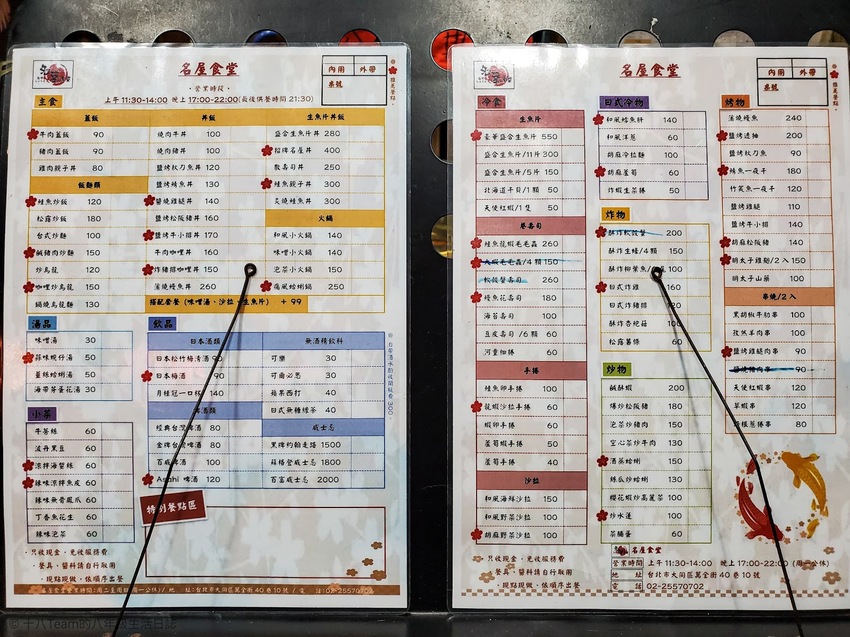 名屋食堂
內用 外帶
桌號
•營業時段•
上午 11:30-14:00 晚上 17:00-22:00(最後供餐時間 21:30)
主食
蓋飯
牛肉蓋飯 90
豬肉蓋飯 90
雞肉親子丼 80
飯麵類
鮭魚炒飯 120
松露炒飯 180
台式炒飯 100
鹹豬肉炒飯 150
炒烏龍 120
咖哩炒烏龍 150
鍋燒烏龍麵 130
丼飯
燒肉牛丼 100
燒肉豬丼 100
鹽烤秋刀魚丼 120
鹽烤鯖魚丼 130
醬燒雞腿丼 140
鹽烤松阪豬丼 160
鹽烤牛小排丼 170
牛肉咖哩丼 160
炸豬排咖哩丼 150
蒲燒鰻魚丼 260
生魚片丼飯
盛合生魚片丼 280
招牌名屋丼 400
散壽司丼 250
鮭魚親子丼 300
炙燒鮭魚丼 300
火鍋
和風小火鍋 140
味噌小火鍋 140
泡菜小火鍋 150
痛風蛤蜊鍋 250
搭配套餐 (味噌湯、沙拉、生魚片) + 99
湯品
味噌湯 30
蒜味蜆仔湯 50
薑絲蛤蜊湯 50
海帶芽蛋花湯 30
飲品
日本酒類
日本松竹梅清酒 90
日本梅酒 90
月桂冠一口杯 140
啤酒類
經典台灣啤酒 80
金牌台灣啤酒 80
百威啤酒 100
Asahi 啤酒 120
無酒精飲料
可樂 30
可爾必思 30
蘋果西打 40
日式無糖綠茶 40
威士忌
黑牌約翰走路 1500
蘇格登威士忌 1800
百富威士忌 2000
小菜
牛蒡絲 60
波丹黑豆 60
涼拌海蜇絲 60
辣味涼拌魚皮 60
辣味無骨鳳爪 60
丁香魚花生 60
辣味泡菜 60
特別餐點區
•只收現金•免收服務費
•餐具•醬料請自行取用
•現點現做•依順序出餐
名屋食堂營業時間:周二至周日(周一公休)/ 地 址:台北市大同區萬全街40巷10號 / 電 話:02-25570702
名屋食堂
內用 外帶
桌號
冷食
生魚片
豪華盛合生魚片 550
盛合生魚片/11片 300
盛合生魚片/5片 150
北海道干貝/1顆 50
天使紅蝦/1隻 50
卷壽司
鮭魚龍蝦毛毛蟲 260
大蝦毛毛蟲/4顆 150
軟殼蟹壽司 260
鰻魚花壽司 180
海苔壽司 100
豆皮壽司 /6顆 60
河童細捲 60
手捲
鮭魚卵手捲 100
龍蝦沙拉手捲 60
蝦卵手捲 60
蘆筍蝦手捲 50
蘆筍手捲 40
沙拉
和風海鮮沙拉 150
和風野菜沙拉 100
胡麻野菜沙拉 100
日式冷物
和風鱈魚肝 140
和風洋蔥 60
胡麻冷拉麵 100
胡麻蘆筍 60
炸蝦生菜捲 50
炸物
酥炸軟殼蟹 200
酥炸生蠔/4顆 150
酥炸柳葉魚 100
日式炸雞 160
日式炸豬排 120
酥炸杏鮑菇 100
松露薯條 60
炒物
鹹酥蝦 200
爆炒松阪豬 180
泡菜炒豬肉 150
空心菜炒牛肉 130
酒蒸蛤蜊 150
絲瓜炒蛤蜊 130
櫻花蝦炒高麗菜 100
炒水蓮 100
菜脯蛋 100
烤物
蒲燒鰻魚 240
鹽烤透抽 200
鹽烤秋刀魚 90
鯖魚一夜干 180
竹筴魚一夜干 120
鹽烤雞腿 110
鹽烤牛小排 140
胡麻松阪豬 140
明太子雞翅/2入 150
明太子山藥 100
串燒/2入
黑胡椒牛肋串 100
孜然羊肉串 90
鹽烤雞腿肉串 90
鹽烤豬肉串 90
天使紅蝦串 120
草蝦串 120
培根蔥捲串 80
•只收現金•免收服務費
•餐具•醬料請自行取用
•現點現做•依順序出餐
名屋食堂
營業時間 上午 11:30-14:00 晚上 17:00-22:00 (周一公休)
地 址 台北市大同區萬全街 40 巷 10 號
電 話 02-25570702
©十八Team的八年級生活日誌